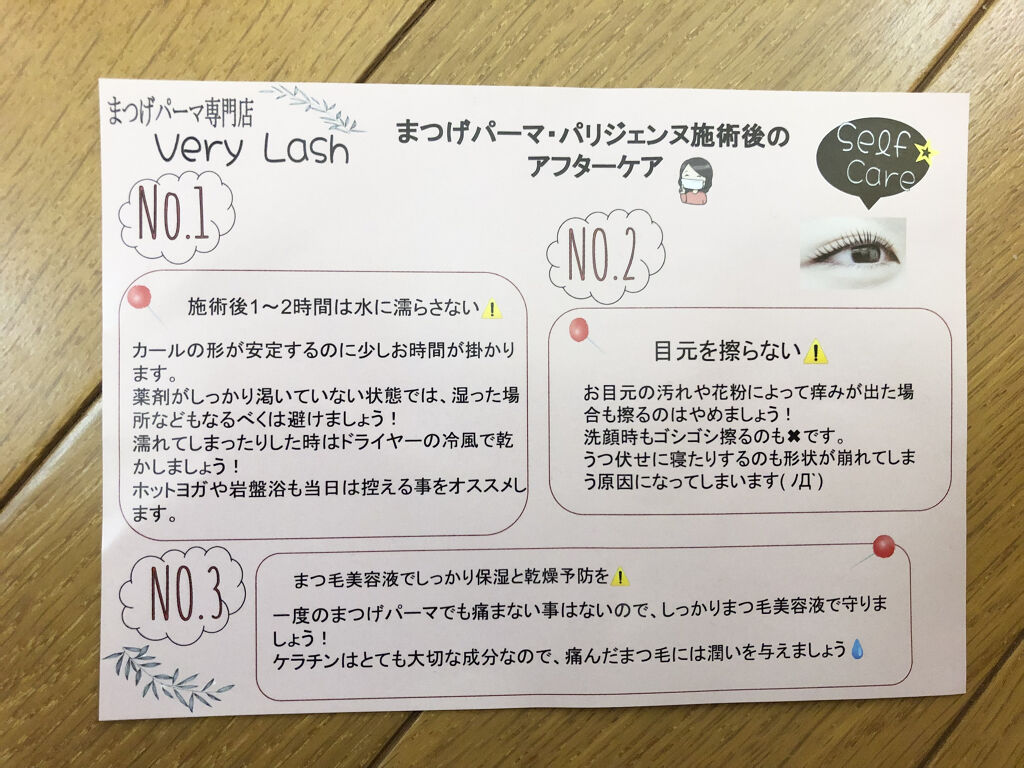 まつげパーマ専門店
Very Lash
まつげパーマ・パリジェンヌ施術後の
アフターケア
Self
Care
NO.1
施術後1〜2時間は水に濡らさない⚠️
カールの形が安定するのに少しお時間が掛かり
ます。
薬剤がしっかり渇いていない状態では、湿った場
所などもなるべくは避けましょう！
濡れてしまったりした時はドライヤーの冷風で乾
かしましょう！
ホットヨガや岩盤浴も当日は控える事をオススメし
ます。
NO.2
目元を擦らない⚠️
お目元の汚れや花粉によって痒みが出た場
合も擦るのはやめましょう！
洗顔時もゴシゴシ擦るのも✖です。
うつ伏せに寝たりするのも形状が崩れてしま
う原因になってしまいます(ﾉД`)
NO.3
まつ毛美容液でしっかり保湿と乾燥予防を⚠️
一度のまつげパーマでも痛まない事はないので、しっかりまつ毛美容液で守りま
しょう！
ケラチンはとても大切な成分なので、痛んだまつ毛には潤いを与えましょう💧